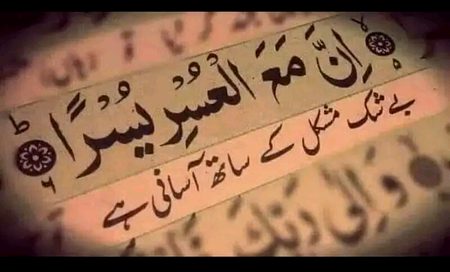 إِنَّ مَعَ الْعُسْرِ يُسْرًا ۶
بے شک مشکل کے ساتھ آسانی ہے
وَإِلَىٰ رَبِّكَ